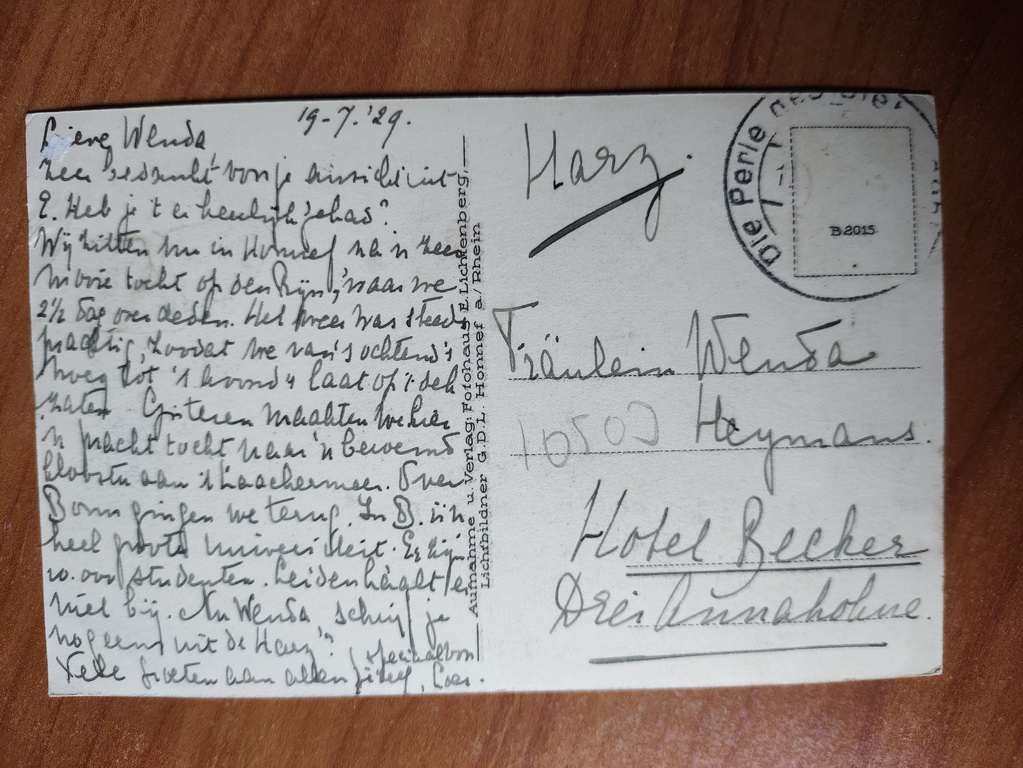 19-7.'29.
Lieve Wenda
Zeer bedankt voor je ansicht uit
E. Heb je 't er heerlijk gehad?
Wij zitten nu in Honnef na 'n zeer
mooie tocht op den Rijn, waar we
2½ dag over deden. Het weer was steeds
prachtig, zoodat we van 's ochtend's
vroeg tot 's avond's laat op 't dek
zaten. Gisteren maakten we hier
'n pracht tocht naar 'n beroemd
klooster aan 't Laachermeer. Over
Bonn gingen we terug. In B. is 'n
heel groote universiteit. Er zijn
studenten. Leiden haalt er
niet bij. Nu Wenda, schrijf je
nog eens uit de Harz?
Vele groeten aan allen speciaal von
Aufnahme u. Verlag: Fotohaus E. Lichtenberg,
Lichtbildner G.D.L. Honnef a/Rhein
Die Perle des
B 2015
Harz.
Fräulein Wenda
Heymans.
10503
Hotel Becker
Drei Annahohne.